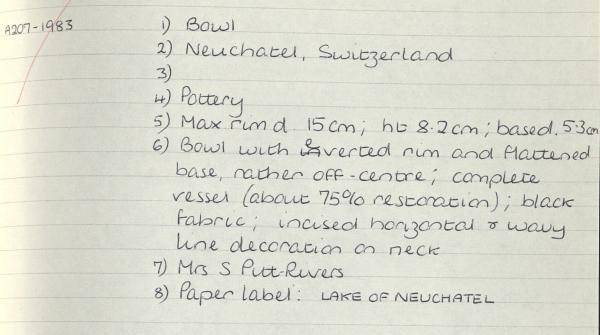 A207-1983
1) Bowl
2) Neuchatel, Switzerland
3)
4) Pottery
5) Max rim d. 15cm; ht 8.2cm; base d. 5.3cm
6) Bowl with everted rim and flattened
base, rather off-centre; complete
vessel (about 75% restoration); black
fabric; incised horizontal & wavy
line decoration on neck
7) Mrs S Pitt-Rivers
8) Paper label: LAKE OF NEUCHATEL